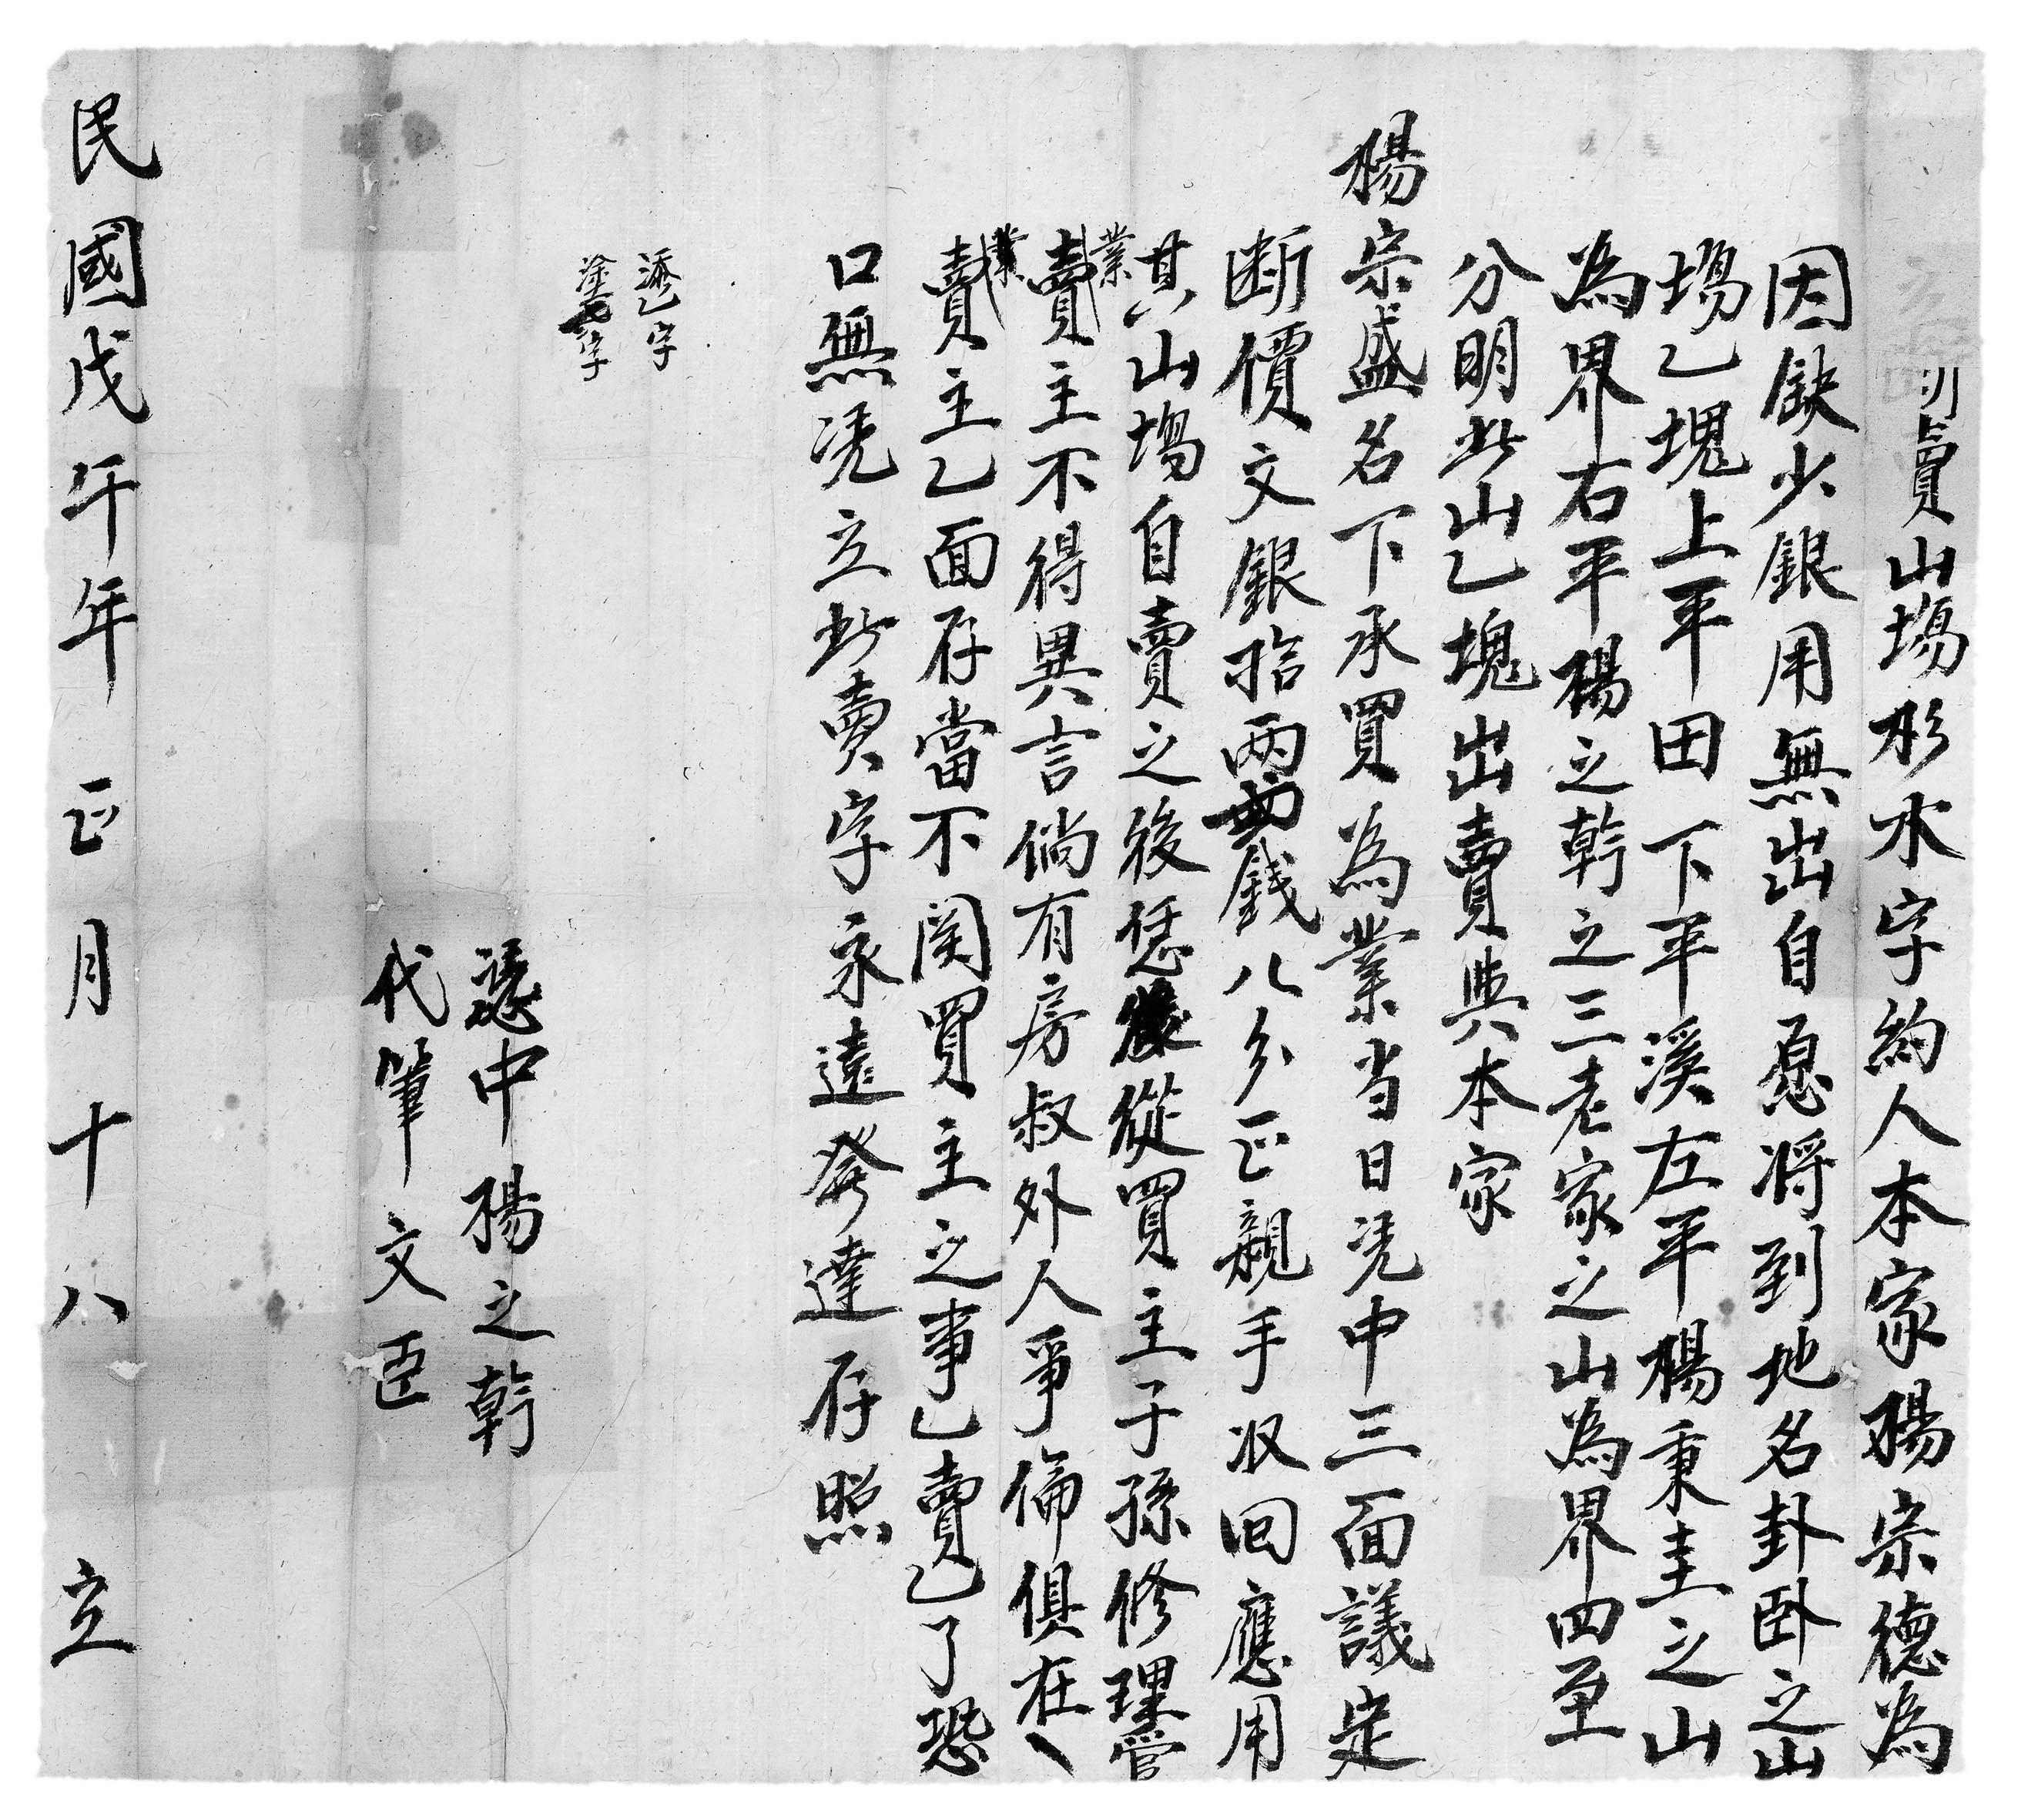 賣山塲杉水字約人本家楊宗德為
因缺少銀用無出自愿将到地名卦卧之山
塲乙塊上平田下平溪左平楊秉圭之山
為界右平楊之乾之三老家之山為界四至
分明此山乙塊出賣與本家
楊宗盛名下承買為業当日凭中三面議定
断價文銀拾两錢八分正親手収回應用
其山塲自賣之後恁從買主子孫修理管
業賣主不得異言倘有房叔外人爭倫俱在
業賣主乙面存當不関買主之事乙賣乙了恐
口無凭立此賣字永遠發達存照
添乙字
塗字
憑中楊之乾
代筆文臣
民國戊午年正月十八立